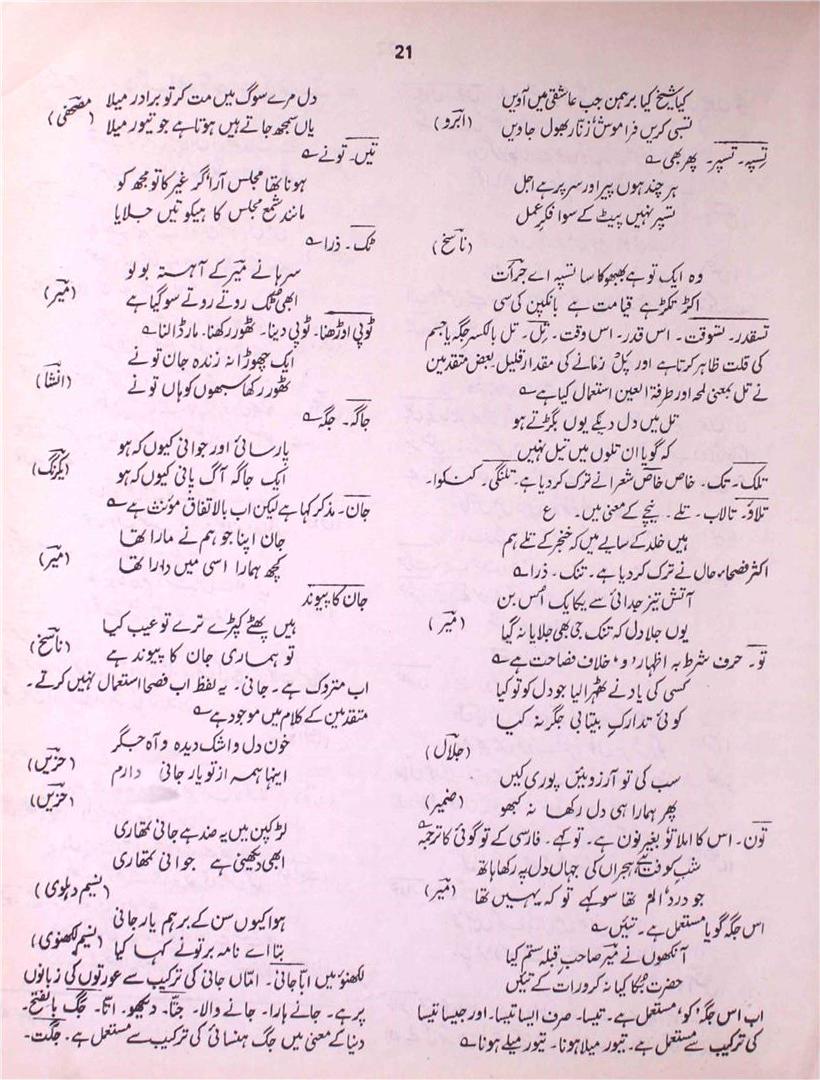 21
کیا شیخ کیا برہمن جب عاشقی میں آویں
تسبی کریں فراموش زنار بھول جاویں (آبرو)
تسپہ۔ تسپر۔ پھر بھی ؎
ہر چند ہوں پیر اور سر پر ہے اجل
تسپر نہیں پیٹ کے سوا فکرِ عمل
(ناسخ)
وہ ایک تو ہے بھبھوکا سا تسپہ اے جرأت
اکڑ تکڑ ہے قیامت ہے بانکپن کی سی
تسقدر۔ تسوقت۔ اس قدر۔ اس وقت۔ تِل۔ تل بالکسر جگہ یا جسم
کی قلت ظاہر کرتا ہے اور پل زمانے کی مقدار قلیل۔ بعض متقدمین
نے تل بمعنی لمحہ اور طرفۃ العین استعمال کیا ہے ؎
تل میں دل دیکے یوں بگڑتے ہو
کہ گویا ان تلوں میں تیل نہیں
تلک۔ تک۔ خاص خاص شعرا نے ترک کر دیا ہے۔ تلنگی۔ کنکوا۔
تلاؤ۔ تالاب۔ تلے۔ نیچے کے معنی میں۔ ع
ہیں خلد کے سایے میں کہ خنجر کے تلے ہم
اکثر فصحاء حال نے ترک کر دیا ہے۔ تنک۔ ذرا ؎
آتش تیز جدائی سے یکایک اُس بن
یوں جلا دل کہ تنک جی بھی جلایا نہ گیا (میر)
تو۔ حرف شرط بہ اظہار 'و' خلاف فصاحت ہے ؎
کسی کی یاد نے ٹھہرا لیا جو دل کو تو کیا
کوئی تدارکِ بیتابی جگر نہ کیا
(جلال)
سب کی تو آرزوئیں پوری کیں
پھر ہمارا ہی دل رکھا نہ کبھو (ضمیر)
توں۔ اس کا املا تو بغیر نون ہے۔ تو کہے۔ فارسی کے تو گوئی کا ترجمہ ؎
شب کوفت ہجراں کی جہاں دل پہ رکھا ہاتھ
جو درد و الم تھا سو کہے تو کہ یہیں تھا (میر)
اس جگہ گویا مستعمل ہے۔ تئیں ؎
آنکھوں نے میر صاحب قبلہ ستم کیا
حضرت بکا کیا نہ کرو رات کے تئیں
اب اس جگہ 'کو' مستعمل ہے۔ تیسا۔ صرف ایسا تیسا۔ اور جیسا تیسا
کی ترکیب سے مستعمل ہے۔ تیور میلا ہونا۔ تیور میلے ہونا ؎
دل مرے سوگ میں مت کر تو برادر میلا
یاں سمجھ جاتے ہیں ہوتا ہے جو تیور میلا (مصحفی)
تیں۔ تو نے ؎
ہونا تھا مجلس آرا گر غیر کا تو مجھ کو
مانند شمع مجلس کا ہیکو تیں جلایا
ٹک۔ ذرا ؎
سرہانے میر کے آہستہ بولو
ابھی ٹک روتے روتے سو گیا ہے (میر)
ٹوپی اوڑھنا۔ ٹوپی دینا۔ ٹھور رکھنا۔ مار ڈالنا ؎
ایک چھوڑا نہ زندہ جان تو نے
ٹھور رکھا سبھوں کو ہاں تو نے (انشا)
جاگہ۔ جگہ ؎
پارسائی اور جوانی کیوں کہ ہو
ایک جاگہ آگ پانی کیوں کہ ہو (یکرنگ)
جان۔ مذکر کہا ہے لیکن اب بالاتفاق مؤنث ہے ؎
جان اپنا جو ہم نے مارا تھا
کچھ ہمارا اسی میں وارا تھا (میر)
جان کا پیوند
ہیں پھٹے کپڑے ترے تو عیب کیا
تو ہماری جان کا پیوند ہے (ناسخ)
اب متروک ہے۔ جانی۔ یہ لفظ اب فصحا استعمال نہیں کرتے۔
متقدمین کے کلام میں موجود ہے ؎
خون دل و اشک دیدہ و آہ جگر
اینہا ہمہ از تو یار جانی دارم (حزیں)
(حزیں)
لڑکپن میں یہ ضد ہے جانی تمھاری
ابھی دیکھنی ہے جوانی تمھاری
(نسیم دہلوی)
ہوا کیوں سن کے برہم یار جانی
بتا اے نامہ بر تو نے کہا کیا (نسیم لکھنوی)
لکھنؤ میں ابّا جانی۔ امّاں جانی کی ترکیب سے عورتوں کی زبانوں
پر ہے۔ جانے ہارا۔ جانے والا۔ جتّا۔ دیکھو۔ اتّا۔ جگ بالفتح۔
دنیا کے معنی میں جگ ہنسائی کی ترکیب سے مستعمل ہے۔ جگت۔